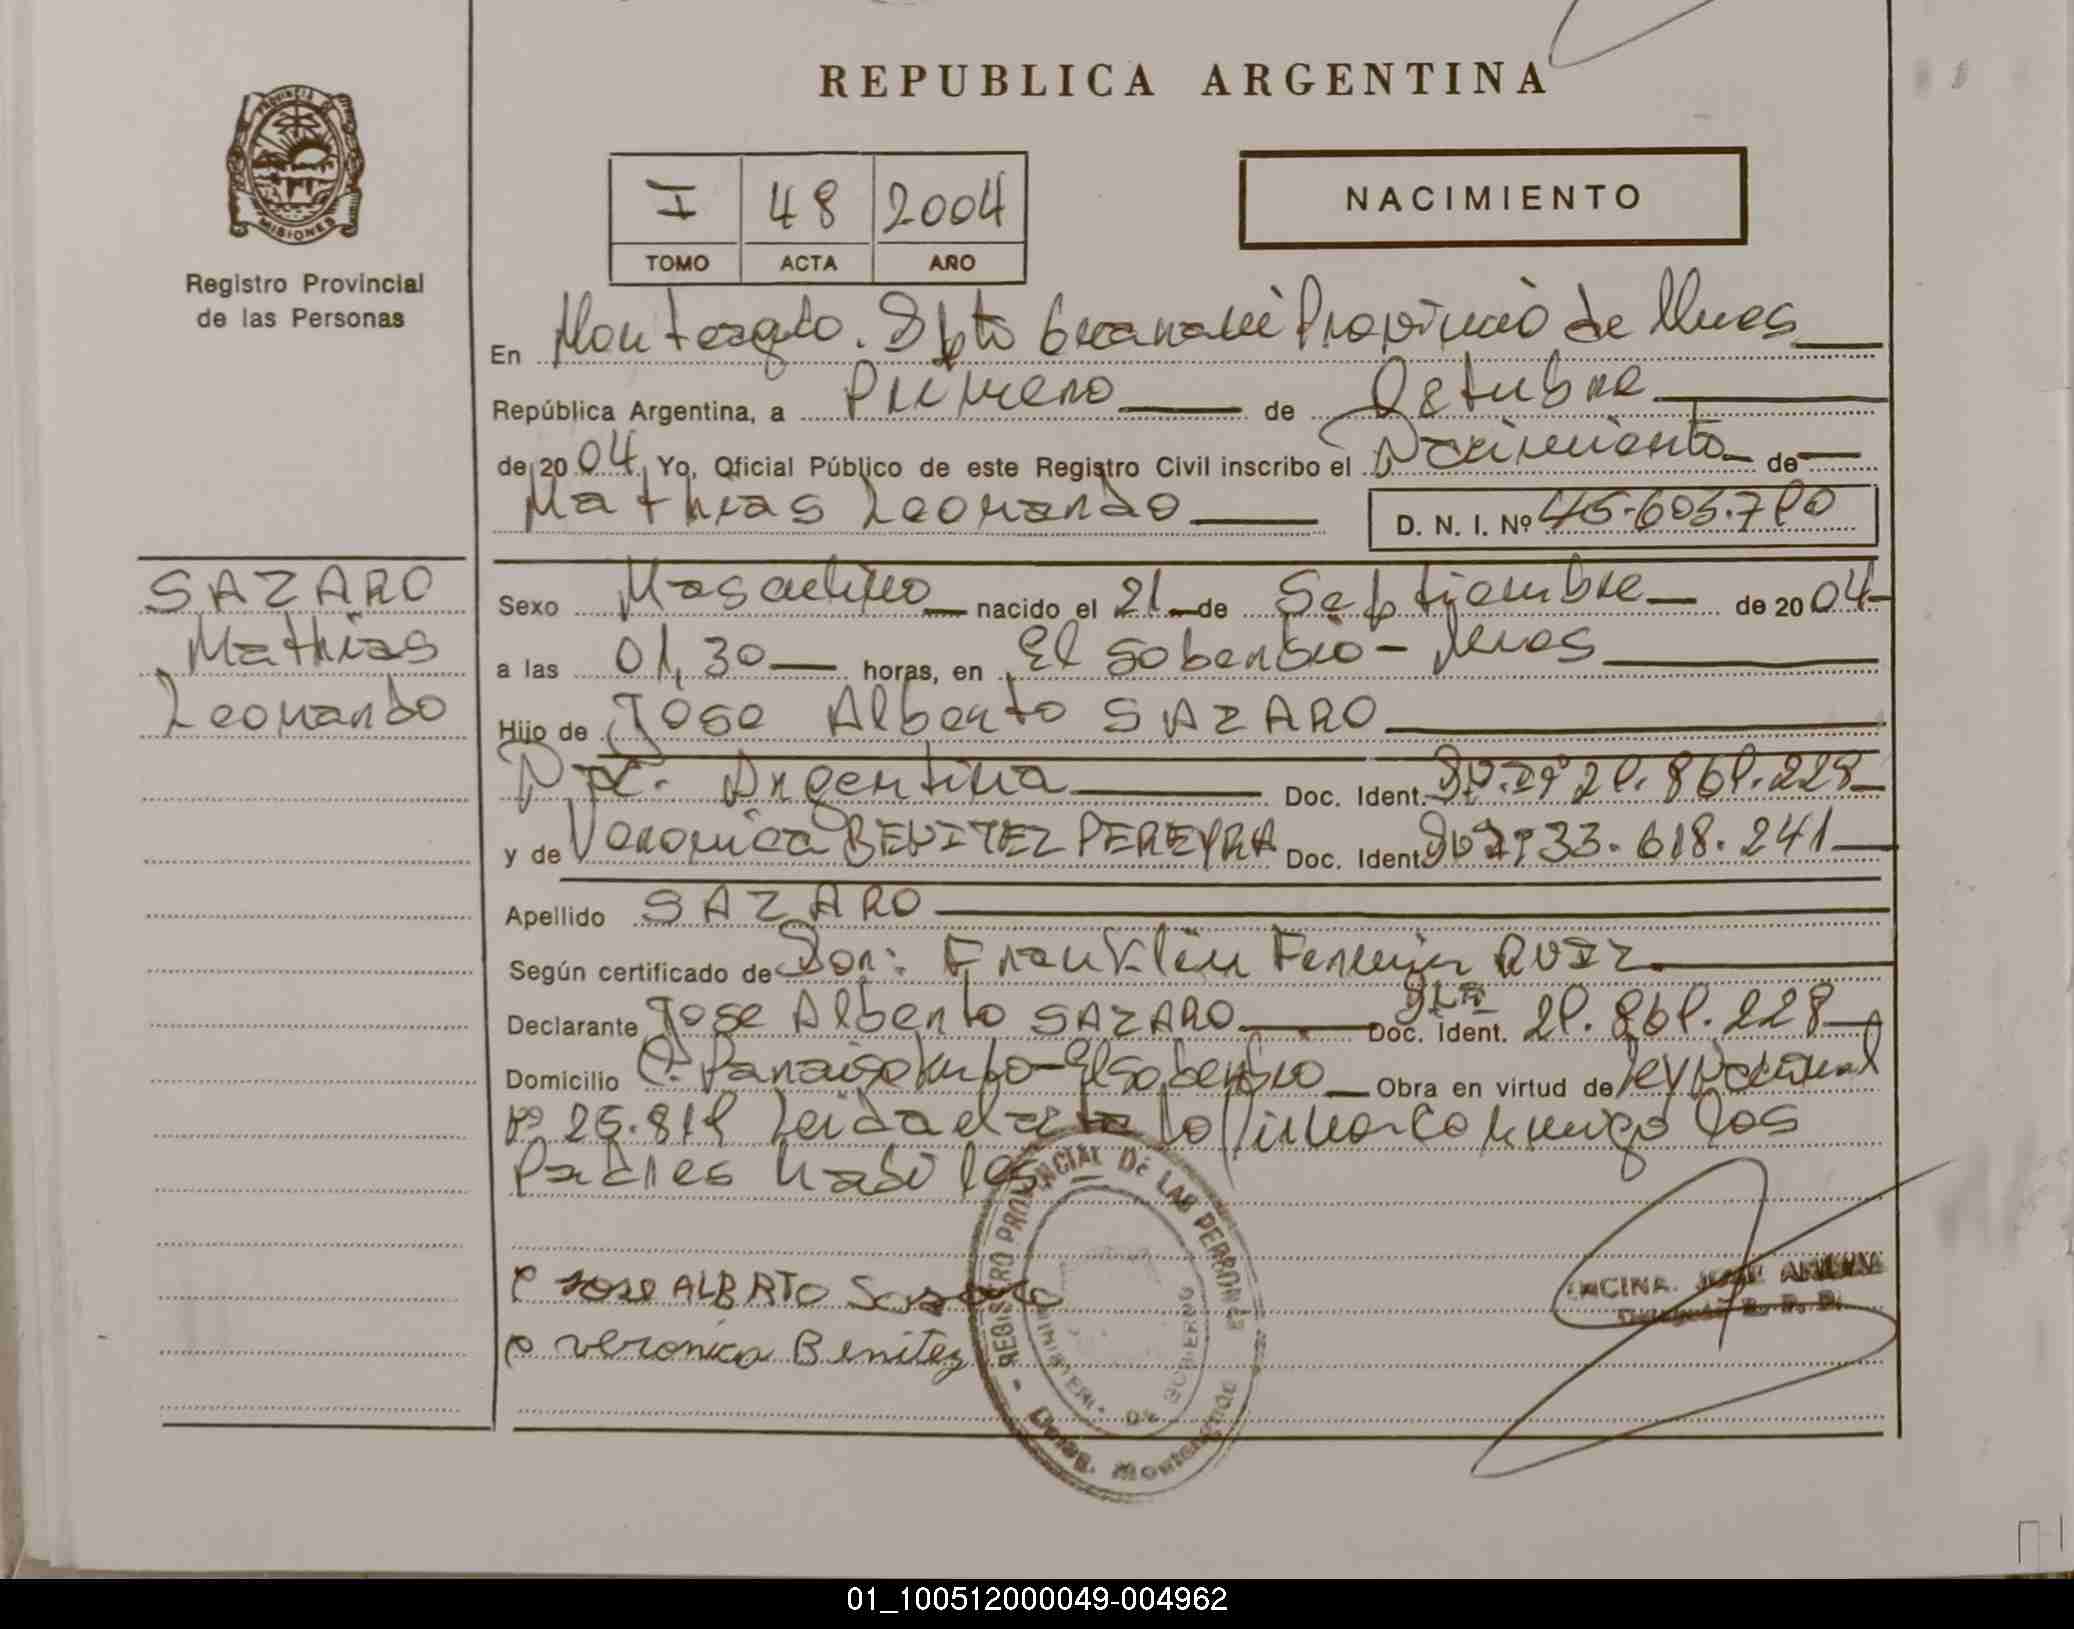 REPUBLICA ARGENTINA
PROVINCIA DE
MISIONES
Registro Provincial
de las Personas
I 48 2004
TOMO ACTA AÑO
NACIMIENTO
En Dpto Guaraní Provincia de Mnes
República Argentina, a Primero de Octubre
de 20 04 Yo, Oficial Público de este Registro Civil inscribo el Nacimiento de
Mathias Leonardo D. N. I. Nº
SAZARO
Mathias
Leonardo
Sexo Masculino nacido el 21 de Septiembre de 20 04
a las 01,30 horas, en El Soberbio - Mnes
Hijo de Jose Alberto SAZARO
Nac. Argentina Doc. Ident.
y de Veronica BENITEZ PEREYRA Doc. Ident. 33.618.241
Apellido SAZARO
Según certificado de Dor: Franklin Fermin RUIZ
Declarante Jose Alberto SAZARO Doc. Ident.
Domicilio El Soberbio Obra en virtud de Ley Nacional
Nº 25.819 Leida el acta lo firmar conmigo los
Padres
JOSE ALBRTO
Veronica Benitez
REGISTRO PROVINCIAL DE LAS PERSONAS
MINISTERIO DE GOBIERNO
ENCINA. JOSE
01_100512000049-004962